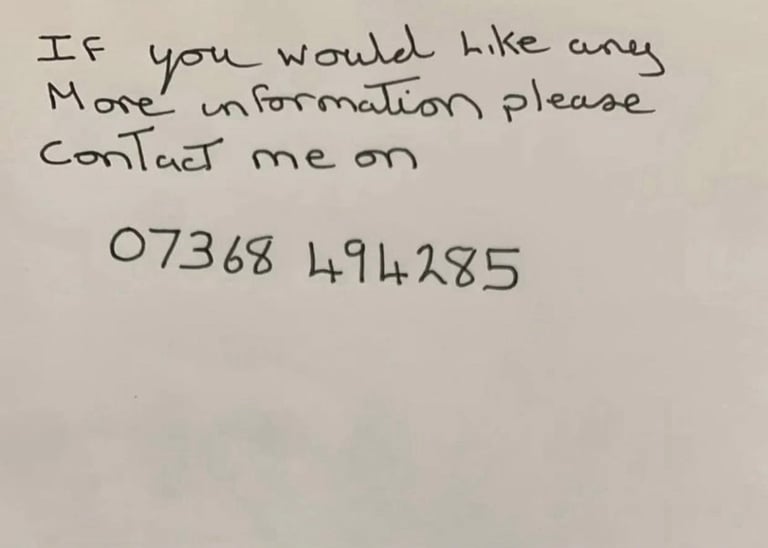 If you would like any
More information please
Contact me on
07368 494285